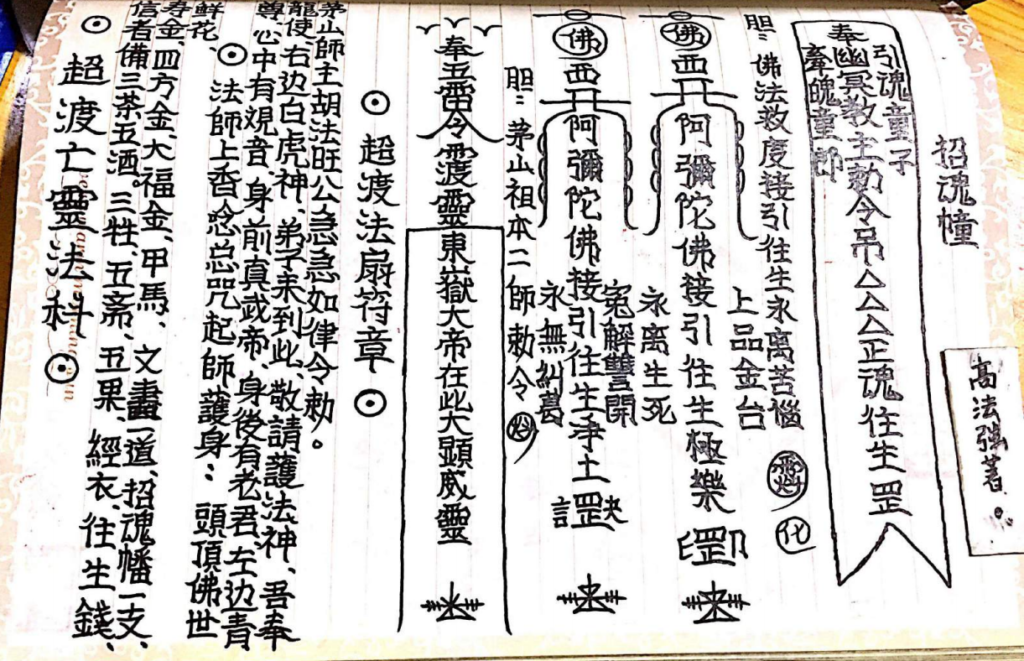 ⊙超渡亡靈法科⊙
信者備三茶五酒。三牲、五斋、五果、經衣、往生錢、
寿金、四方金、大福金、甲馬、文畫一道、招魂幡一支、
鮮花、
⊙法師上香念总咒起師護身：頭頂佛世
尊心中有观音、身前真武帝、身後有老君左边青
龍使右边白虎神、弟子来到此、敬請護法神、吾奉
茅山師主胡法旺公急急如律令勅。
⊙超渡法扇符章⊙
奉五雷令渡靈東嶽大帝在此大顕威靈
胆：茅山祖本二師勅令
佛西阿彌陀佛接引往生淨土罡
永無糾葛
冤解讐開
佛西阿彌陀佛接引往生極樂罡
永离生死
上品金台
胆：佛法救度接引往生永离苦惱
化
招魂幢
引魂童子
奉幽冥教主勅令吊△△△正魂往生罡
童郎
高法强著。